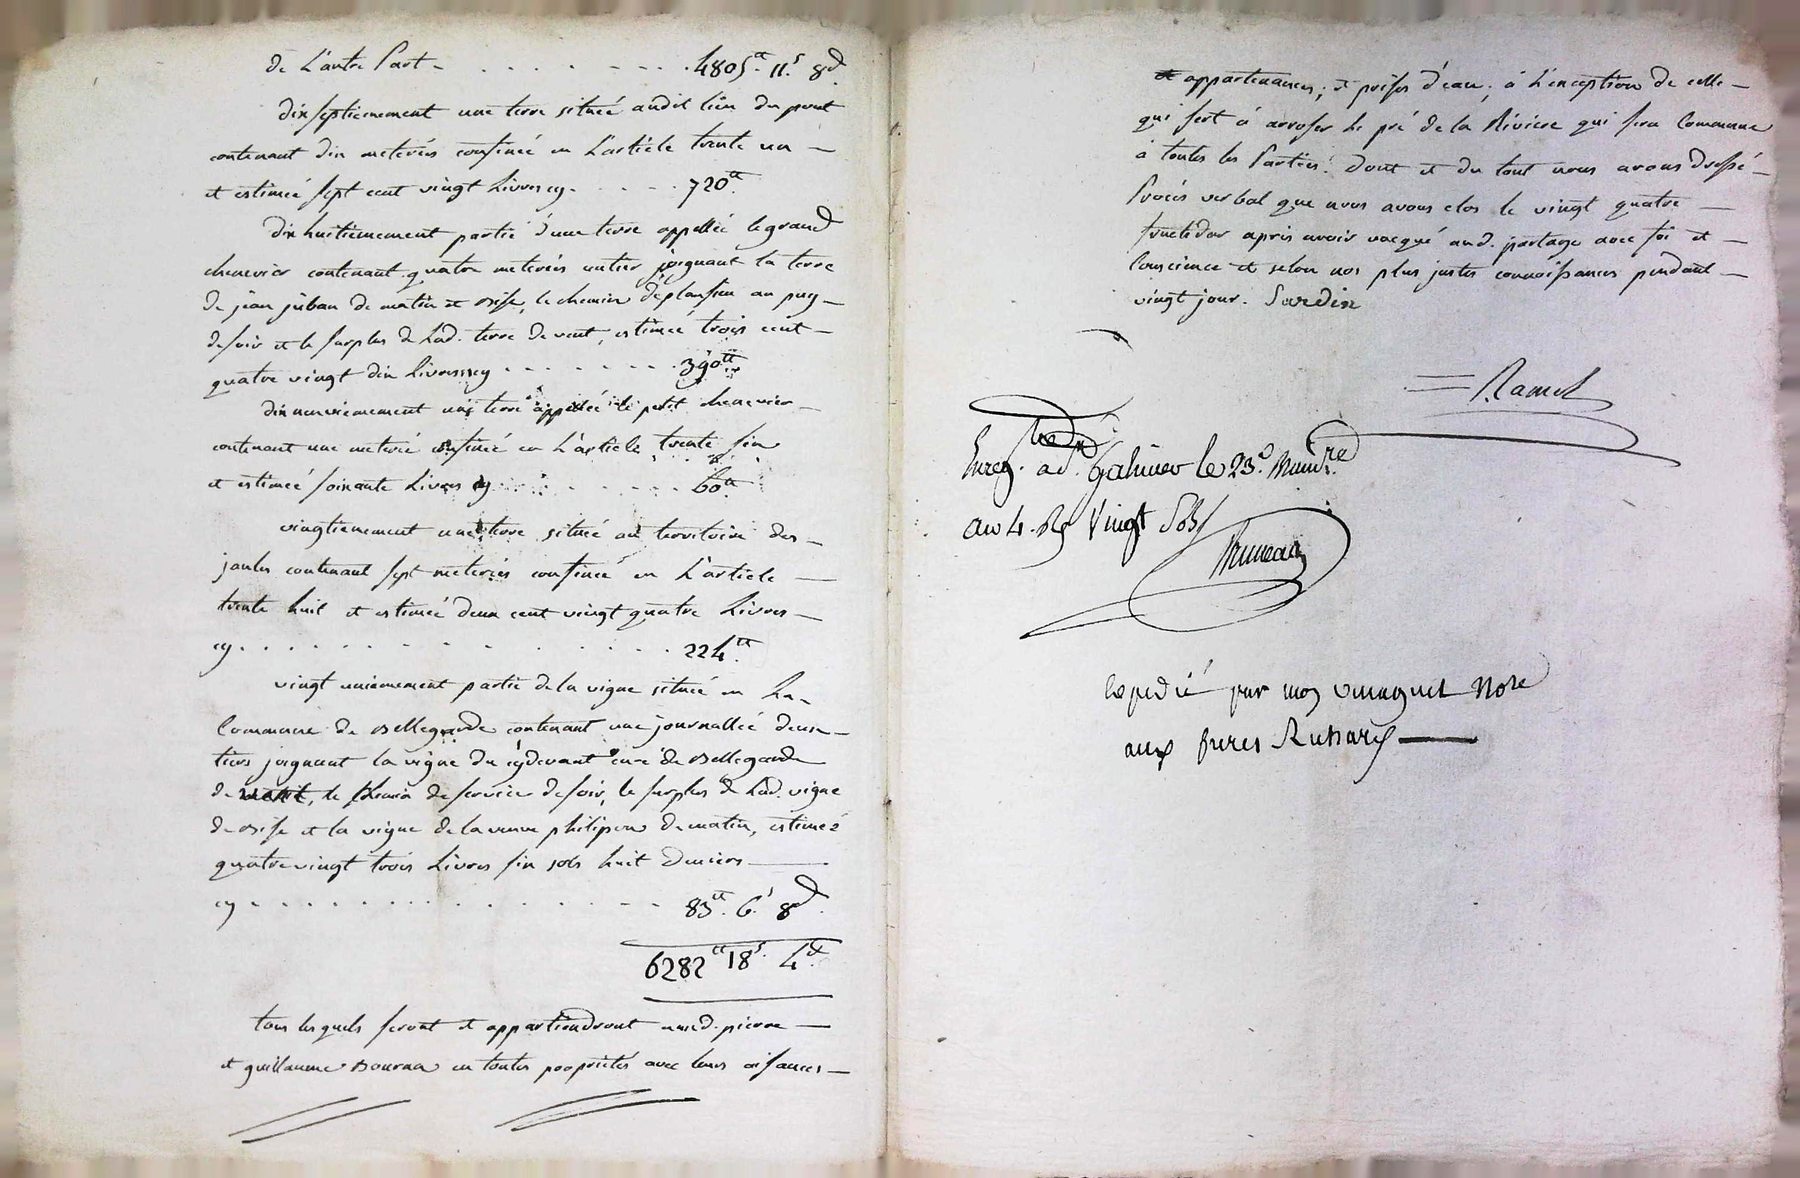 de L'autre Part - . . . . . . . . 4805.tt 11.s 8d
dix septiemement une terre située audit lieu du pont
contenant dix meterées confinée en L'article trente un —
et estimée sept cent vingt Livres cy. . . . . . 720.tt
dix huitiemement partie d'une terre appellée le grand
chenevier contenant quatre meterées entier joignant la terre
de jean juban de matin et bise, le chemin de plansieu au puy —
de soir et le surplus de Lad. terre de vent, estimée trois cent —
quatre vingt dix Livres cy . . . . . . . . 390.tt
dix neuviemement une terre appellée le petit chenevier —
contenant une meterée confinée en L'article trente six
et estimée soixante Livres cy . . . . . . . 60.tt
vingtiemement une terre située au territoire des —
jaules contenant sept meterées confinée en L'article —
trente huit et estimée deux cent vingt quatre Livres —
cy . . . . . . . . . . . . 224.tt
vingt uniemement partie de la vigne située en La -
Commune de Bellegarde contenant une journallée deux —
tiers joignant la vigne du cydevant curé de Bellegarde
de vent, le chemin de service de soir, le surplus de Lad. vigne
de bise et la vigne de la veuve philipon de matin, estimée
quatre vingt trois Livres six sols huit deniers —
cy - . . . . . . . . . . . . 83.tt 6.s 8d.
6282tt 18s. 4d.
tous lesquels seront et appartiendront auxd. pierre —
et guillaume Bourna en toutes propriétés avec leurs aisances —
et appartenances, et prises d'eau, à L'exception de celle —
qui sert à arroser le pré de la Rivière qui sera Commune
à toutes les Parties. Dont et du tout nous avons dressé —
Procès verbal que nous avons clos le vingt quatre —
fructidor après avoir vacqué aud. partage avec foi et —
Conscience et selon nos plus justes connoissances pendant —
vingt jour. Sardin
Ramel
Enreg. a St Galmier le 23e. Vendre
an 4. R. Vingt Sols
Bruneau
Expedié par moy nore
aux freres